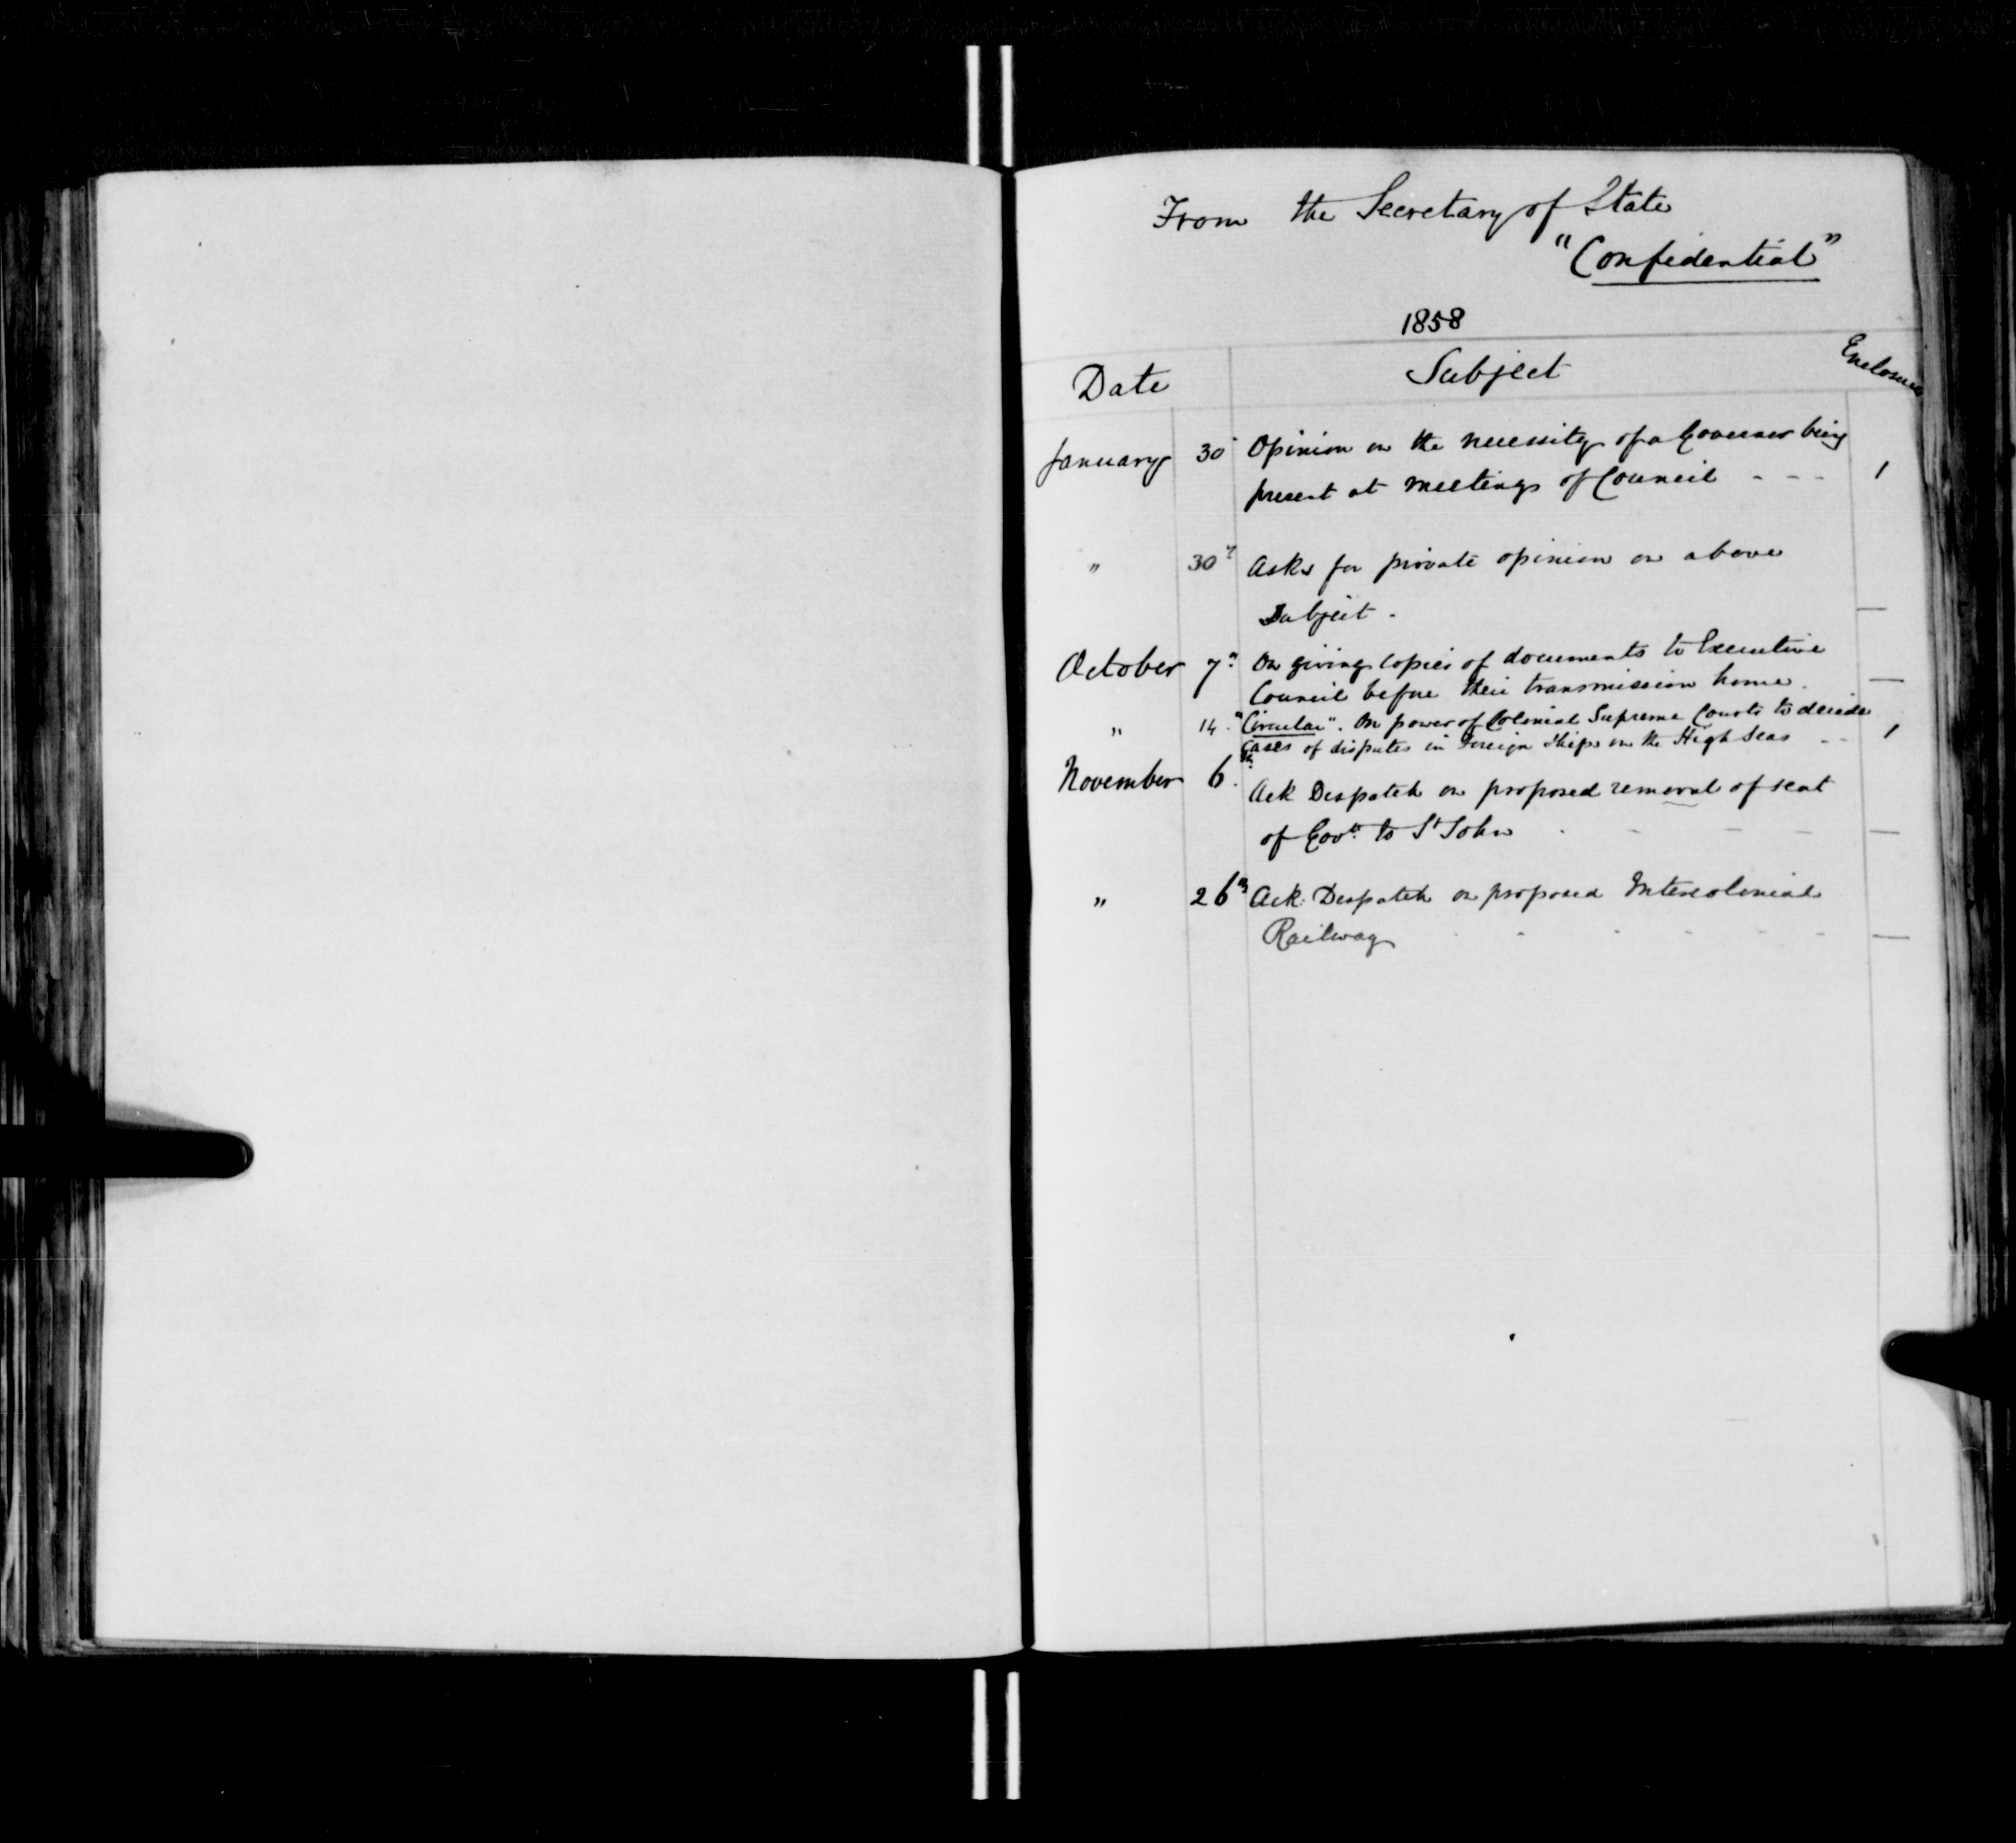 From the Secretary of State
"Confidential"
1858
Date Subject Enclosures
January 30 Opinion on the necessity of a Governor being
present at meetings of Council - - - 1
" 30 Asks for private opinion on above
Subject - —
October 7th On giving copies of documents to Executive
Council before their transmission home. —
" 14 "Circular". On power of Colonial Supreme Courts to decide
Cases of disputes in Foreign Ships on the High Seas - - 1
November 6th Ack Despatch on proposed removal of seat
of Govt. to St John - - - - —
" 26th Ack: Despatch on proposed Intercolonial
Railway - - - - - - —